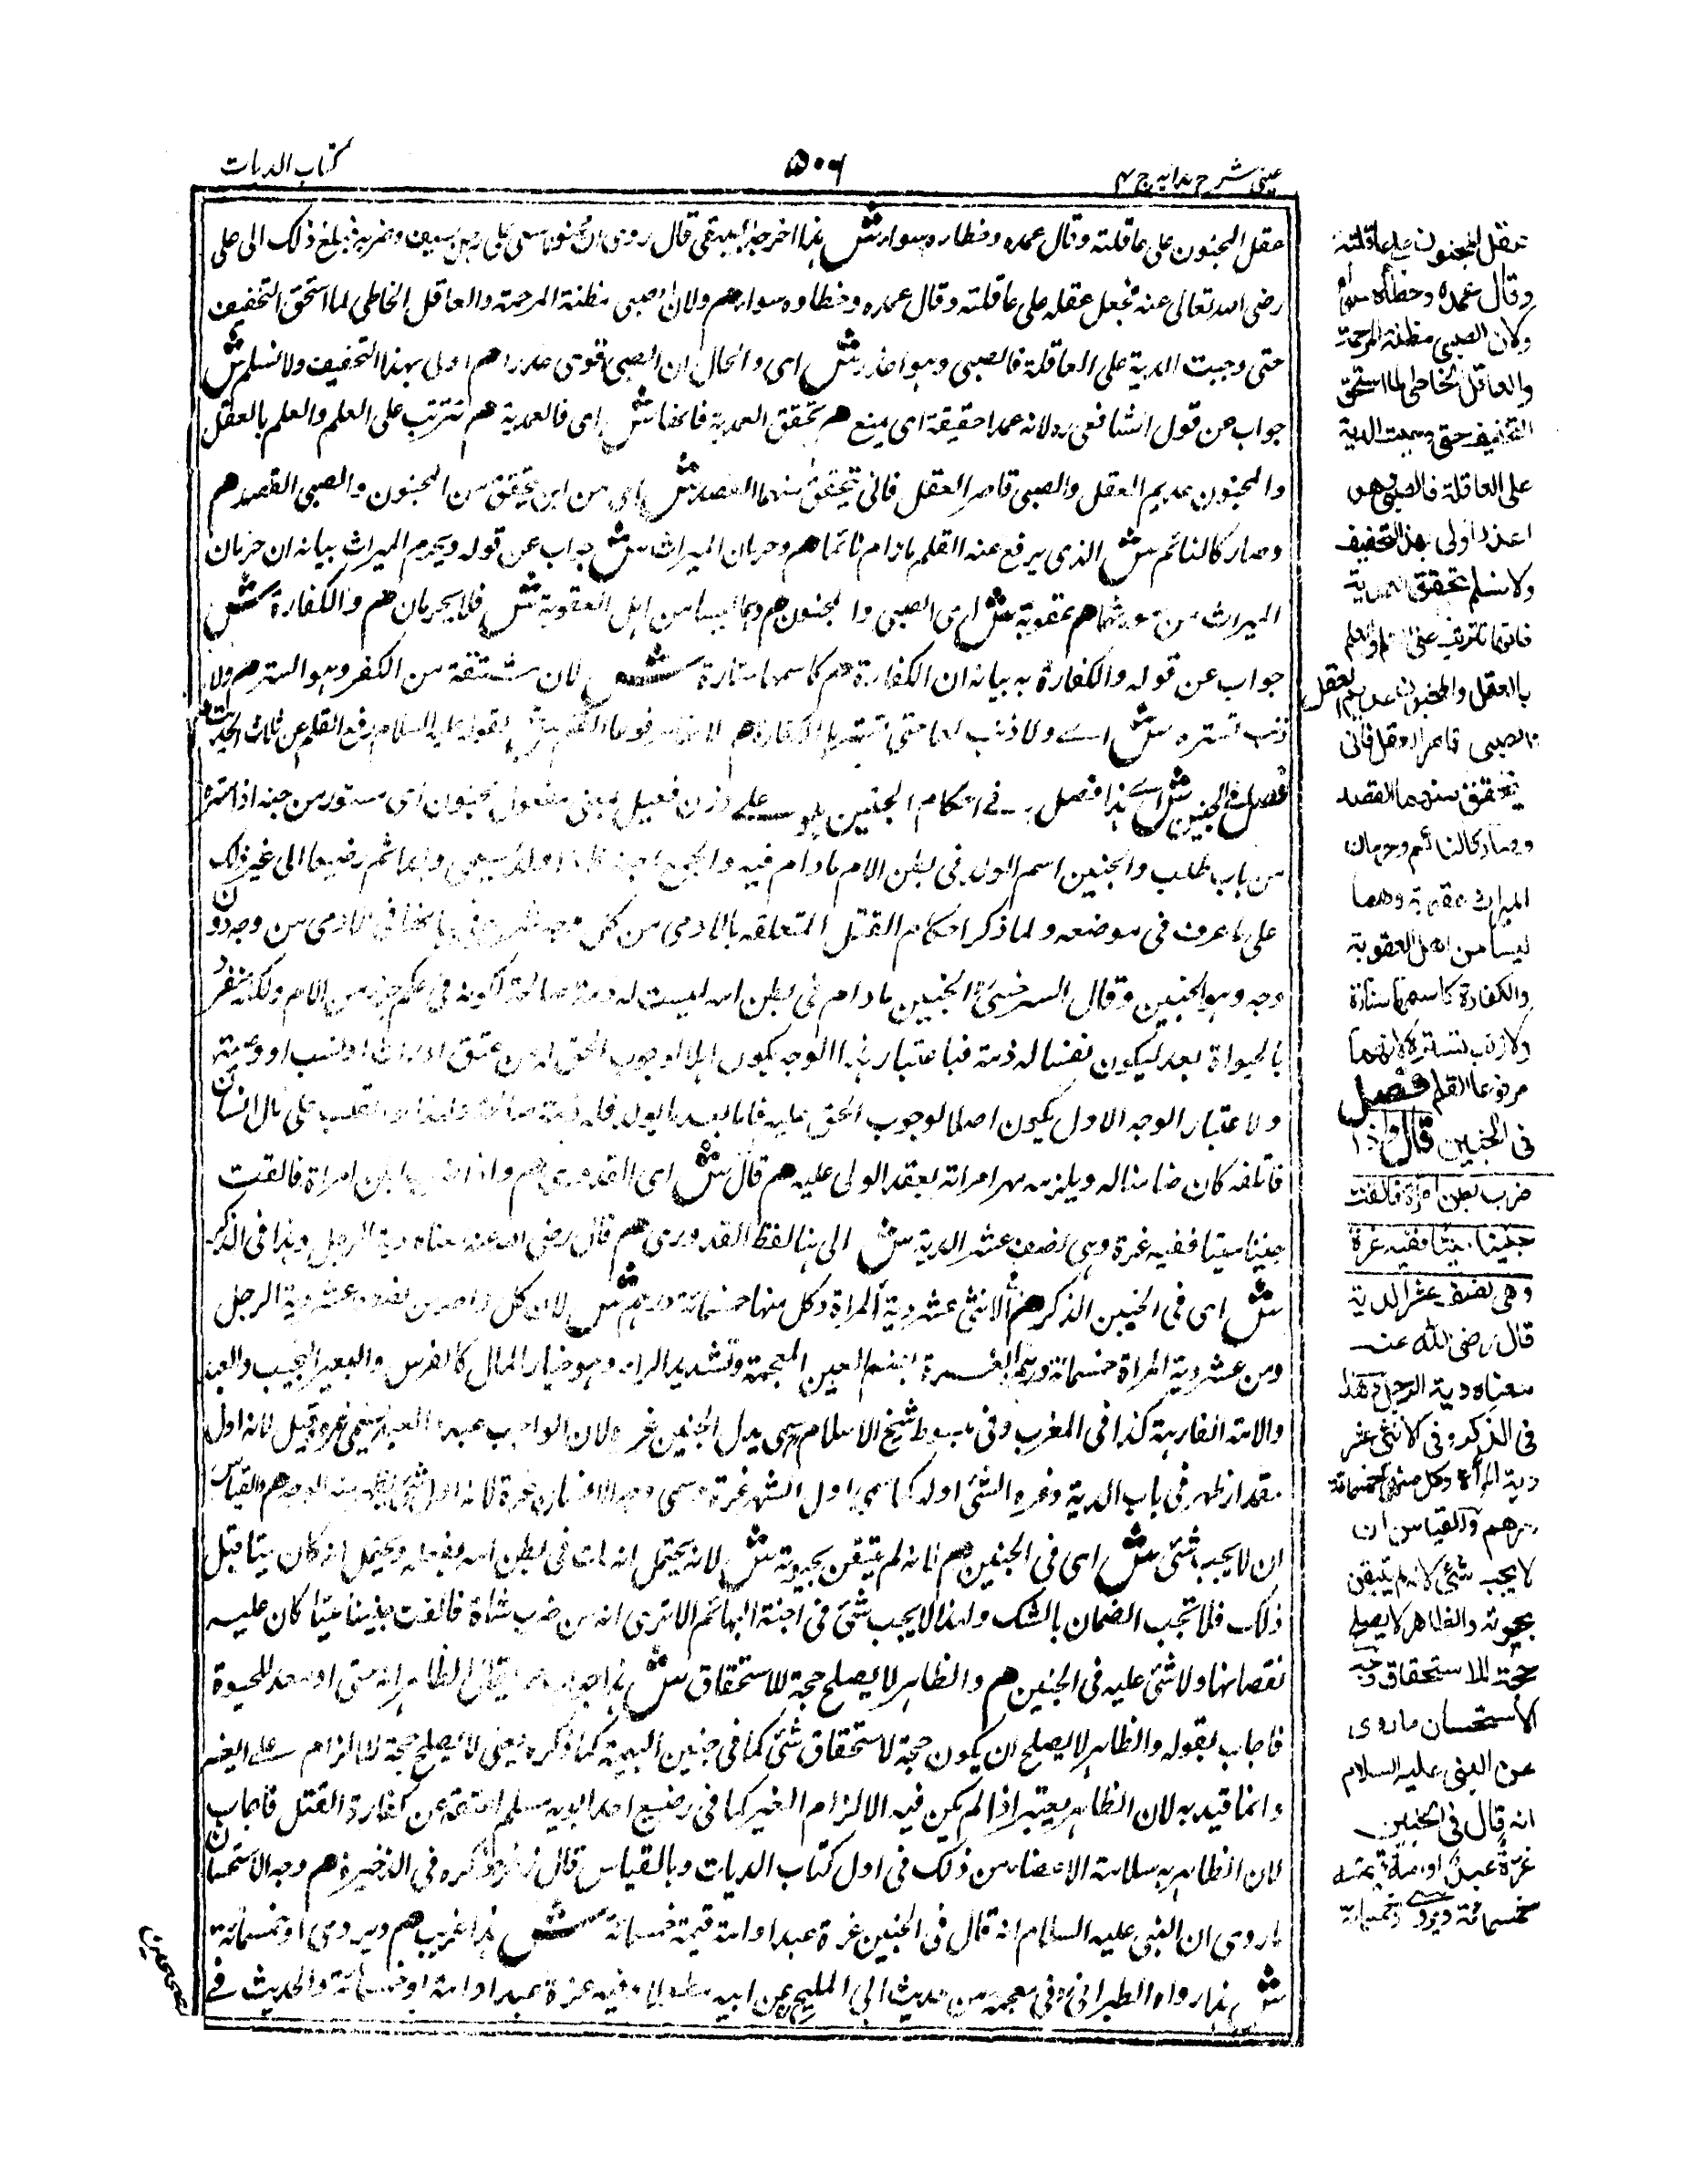 عینی شرح هدایه ج ۴
۵۰۶
كتاب الديات
عقل المجنون على عاقلته وقال عمده وخطاره سواء ش هذا اخرجه البيهقى قال روى ان مجنونا سعى على رجل بسيف وضربه فبلغ ذلك الى على
رضى الله تعالى عنه فجعل عقله على عاقلته وقال عمده وخطاوه سواء هم ولان الصبى مظنة المرحمة والعاقل الخاطى لما استحق التخفيف
حتى وجبت الدية على العاقلة فالصبى وهو اعذر ش اى والحال ان الصبى اقوى عذرا هم اولى بهذا التخفيف ولا نسلم ش
جواب عن قول الشافعى ره لانه عمد حقيقة اى يمنع هم تحقق العمدية فانها ش اى فالعمدية هم تترتب على العلم والعلم بالعقل
والمجنون عديم العقل والصبى قاصر العقل فانى يتحقق منهما القصد ش اى من اين يتحقق من المجنون والصبى القصد هم
وصار كالنائم ش الذى يرفع عنه القلم مادام نائما هم وحرمان الميراث ش جواب عن قوله ويحرم الميراث بيانه ان حرمان
الميراث من مورثهما هم عقوبة ش اى الصبى والمجنون هم وهما ليسا من اهل العقوبة ش فلا يحرمان هم والكفارة ش
جواب عن قوله والكفارة به بيانه ان الكفارة هم كاسمها ستارة ش لان مشتقة من الكفر وهو الستر هم ولا
ذنب تستره ش اى ولا ذنب لهما حتى تستره الكفارة هم لانهما مرفوعا القلم ش لقوله عليه السلام رفع القلم عن ثلاث الحديث
فصل فى الجنين ش اى هذا فصل فى احكام الجنين وهو على وزن فعيل بمعنى مفعول مجنون اى مستور من جنه اذا ستره
من باب طلب والجنين اسم الولد فى بطن الام مادام فيه والجمع اجنة فاذا ولد يسمى وليدا ثم رضيعا الى غير ذلك
على ما عرف فى موضعه ولما ذكر احكام القتل المتعلقه بالآدمى من كل وجه شرع فى احكامها فى الآدمى من وجه دون
وجه وهو الجنين وقال السرخسى ره الجنين مادام فى بطن امه ليست له ذمة صالحة لكونه فى حكم جزء من الام ولكنه منفرد
بالحيواة بعد ليكون نفسا له ذمة فباعتبار هذا الوجه يكون اهلا لوجوب الحق له من عتق او ارث او نسب او وصية
ولاعتبار الوجه الاول يكون اصلا لوجوب الحق عليه فاما بعد ما يولد فله ذمة صالحة ولهذا لو انقلب على مال انسان
فاتلفه كان ضامنا له ويلزمه مهر امراته بعقد الولى عليه هم قال ش اى القدورى هم واذا ضرب بطن امراة فالقت
جنينا ميتا ففيه غرة وهى نصف عشر الدية ش الى هنا لفظ القدورى هم قال رضى الله عنه معناه دية الرجل وهذا فى الذكر
ش اى فى الجنين الذكر هم وفى الانثى عشر دية المراة وكل منهما خمسمائة درهم ش لان كل واحد من نصف عشر دية الرجل
ومن عشر دية المراة خمسمائة درهم الغرة بضم الغين المعجمة وتشديد الراء وهو خيار المال كالفرس والبعير النجيب والعبد
والامة الفارهة كذا فى المغرب وفى مبسوط شيخ الاسلام سمى بدل الجنين غرة لان الواجب عبد والعبد يسمى غرة وقيل لانه اول
مقدار ظهر فى باب الدية وغرة الشئ اوله كما سمى اول الشهر غرة وسمى وجه الانسان غرة لانه اول شئ يظهر منه الوجه هم والقياس
ان لا يجب شئ ش اى فى الجنين هم لانه لم يتيقن بحيوته ش لانه يحتمل انه مات فى بطن امه بفعله ويحتمل انه كان ميتا قبل
ذلك فلا تجب الضمان بالشك ولهذا لا يجب شئ فى اجنة البهائم الا ترى انه من ضرب شاة فالقت جنينا ميتا كان عليه
نقصانها ولا شئ عليه فى الجنين هم والظاهر لا يصلح حجة للاستحقاق ش هذا جواب عما يقال الظاهر انه حى او معد للحيوة
فاجاب بقوله والظاهر لا يصلح ان يكون حجة لاستحقاق شئ كما فى جنين البهيمة كما ذكره يعنى لا يصلح حجة للالزام على الغير
وانما قيد به لان الظاهر يعتبر اذا لم يكن فيه الالزام الغير كما فى رضيع احد ابويه مسلم اعتقه عن كفارة القتل فاجاب
لان الظاهر سلامة الاعضاء من ذلك فى اول كتاب الديات وبالقياس قال زفر وذكره فى الذخيرة هم وجه الاستحسان
ما روى ان النبى عليه السلام انه قال فى الجنين غرة عبد او امة قيمته خمسمائة ش هذا غريب هم ويروى او خمسمائة
ش هذا رواه الطبرانى فى معجمه من حديث ابى المليح عن ابيه مطولا وفيه غرة عبد او امة او خمسمائة والحديث فى
الصحيحين
عقل المجنون على عاقلته
وقال عمده وخطأه سواء
ولان الصبى مظنة المرحمة
والعاقل الخاطى لما استحق
التخفيف حتى وجبت الدية
على العاقلة فالصبى وهو
اعذر اولى بهذا التخفيف
ولا نسلم تحقق العمدية
فانها تترتب على العلم والعلم
بالعقل والمجنون عديم العقل
والصبى قاصر العقل فانى
يتحقق منهما القصد
وصار كالنائم وحرمان
الميراث عقوبة وهما
ليسا من اهل العقوبة
والكفارة كاسمها ستارة
ولا ذنب تستره لانهما
مرفوعا القلم فصل
فى الجنين قال واذا
ضرب بطن امرأة فالقت
جنينا ميتا ففيه غرة
وهى نصف عشر الدية
قال رضى الله عنه
معناه دية الرجل وهذا
فى الذكر وفى الانثى عشر
دية المرأة وكل منهما خمسمائة
درهم والقياس ان
لا يجب شئ لانه لم يتيقن
بحيوته والظاهر لا يصلح
حجة للاستحقاق وجه
الاستحسان ما روى
عن النبى عليه السلام
انه قال فى الجنين
غرة عبد او امة قيمته
خمسمائة ويروى او خمسمائة